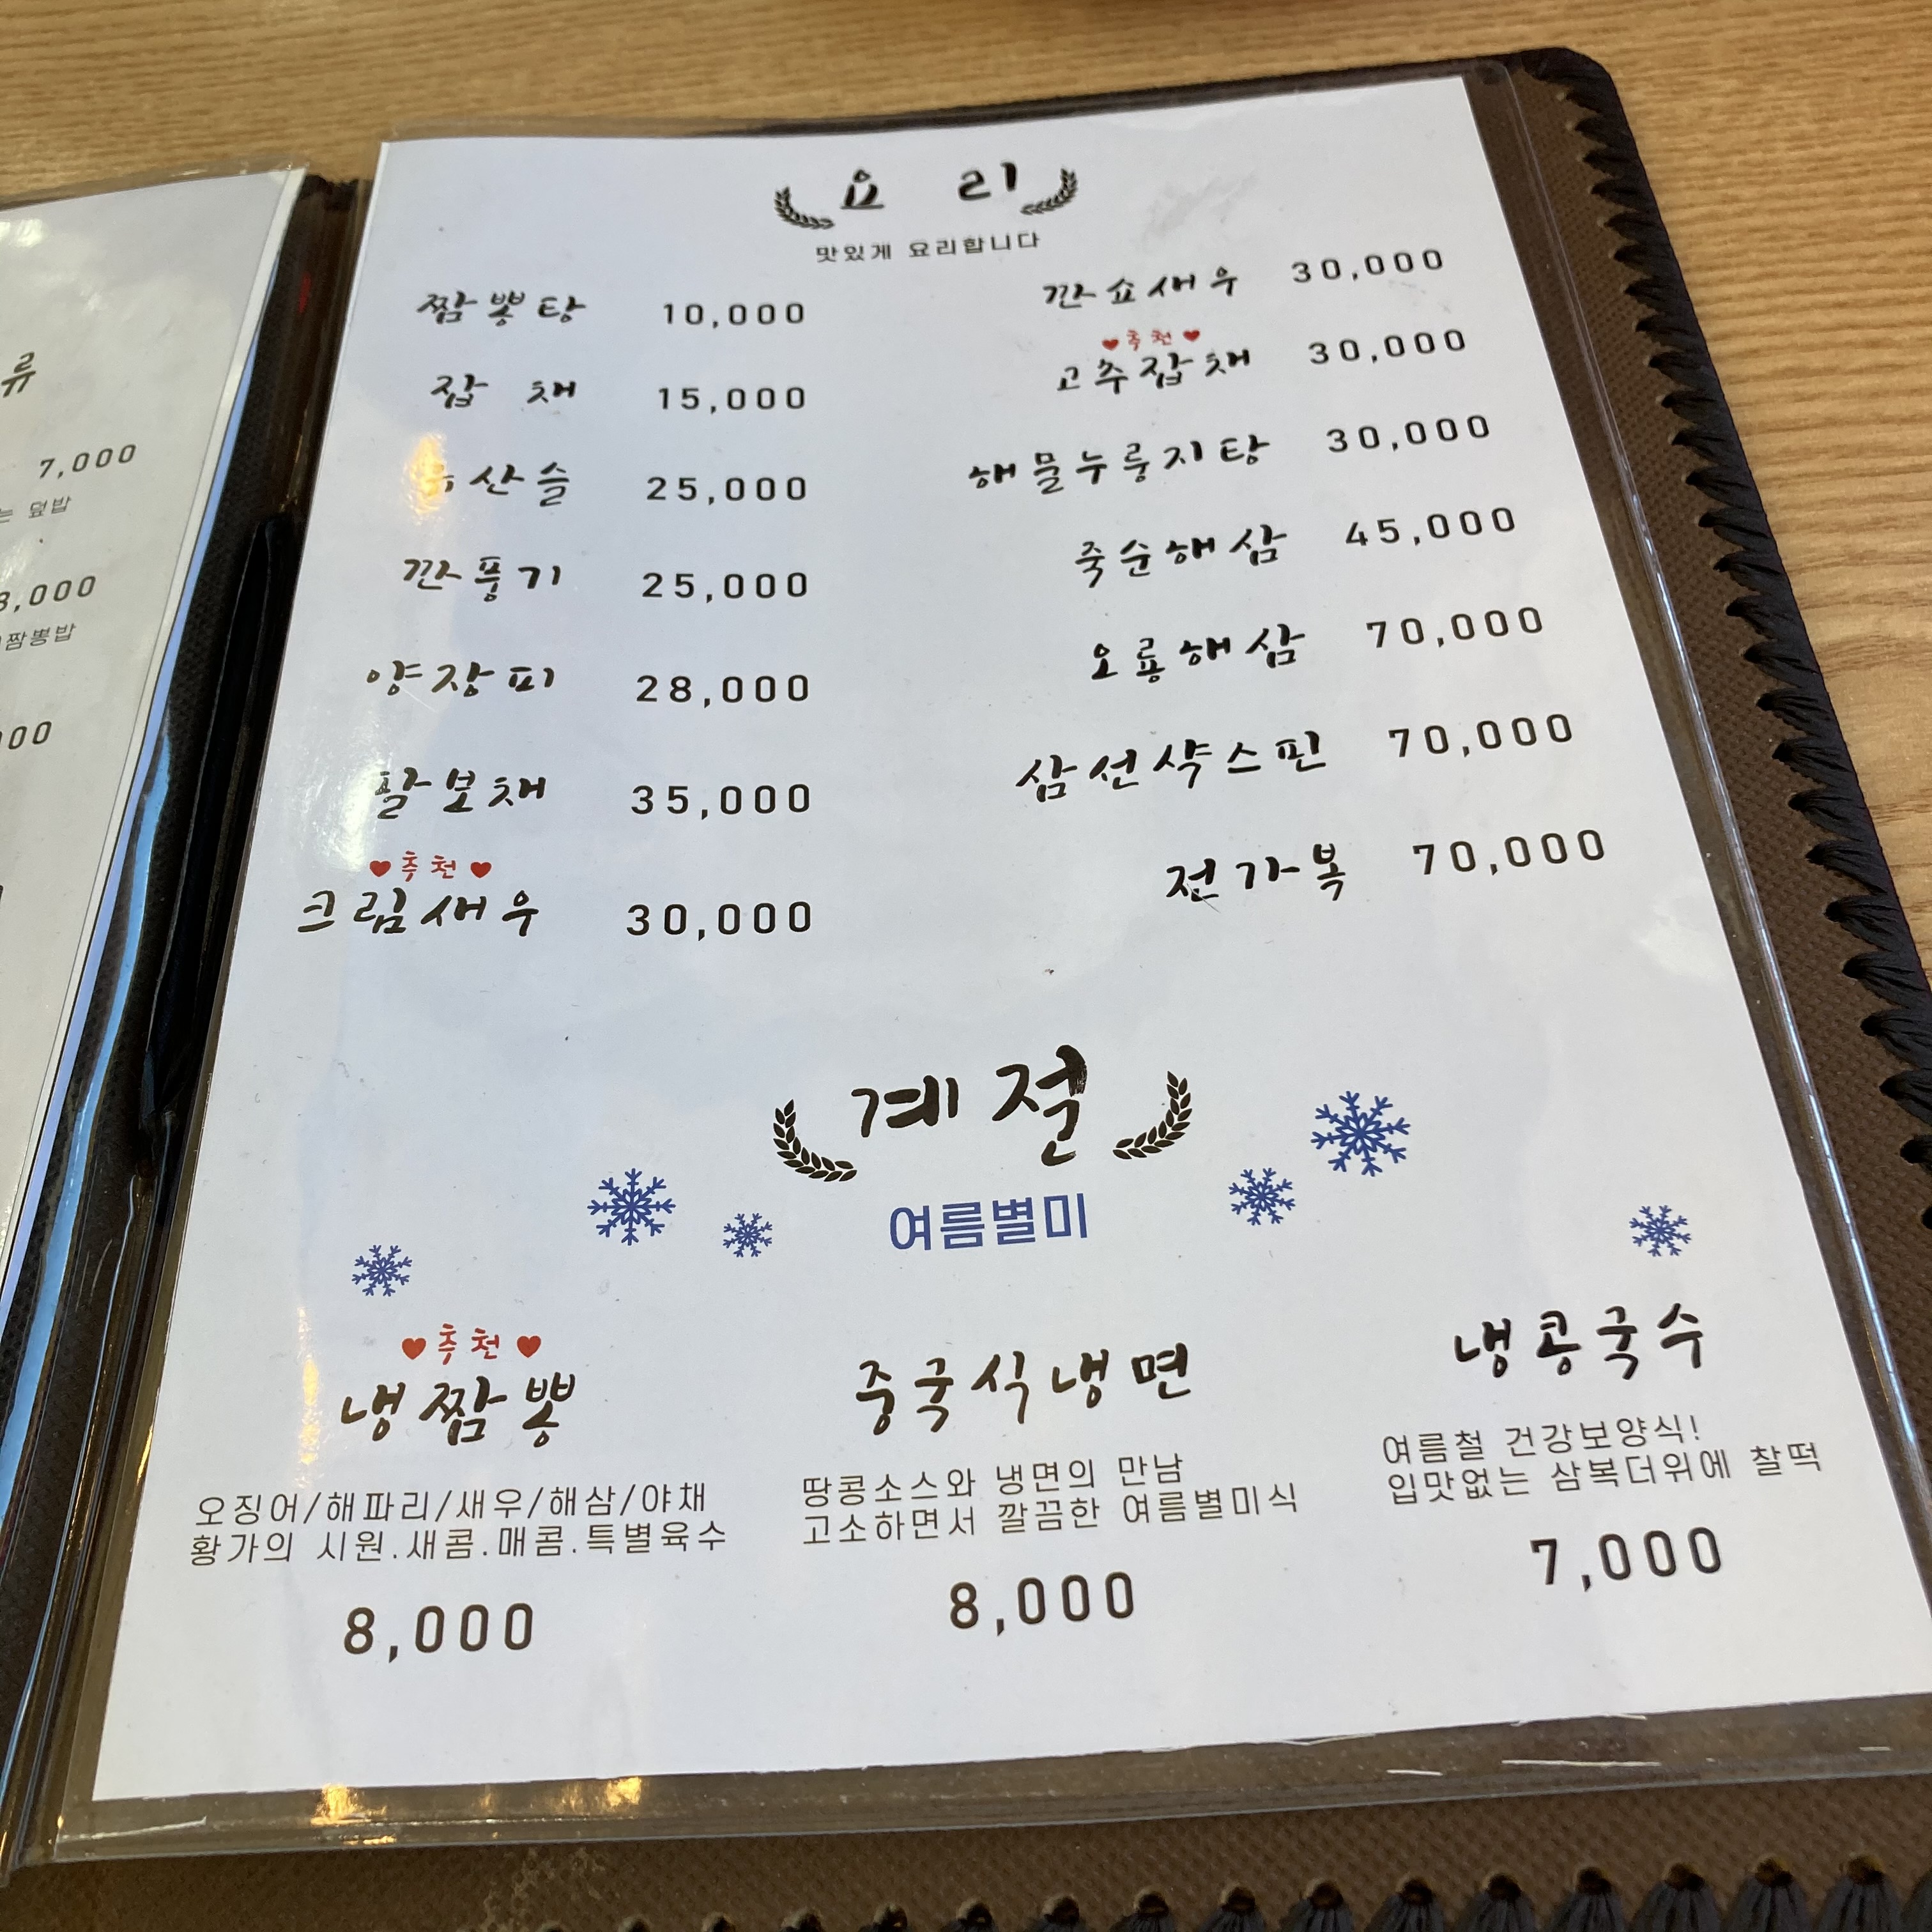 류
7,000
는 덮밥
8,000
짬뽕밥
요 리
맛있게 요리합니다
짬뽕탕 10,000
잡 채 15,000
산슬 25,000
깐풍기 25,000
양장피 28,000
팔보채 35,000
♥추천♥
크림새우 30,000
깐쇼새우 30,000
♥추천♥
고추잡채 30,000
해물누룽지탕 30,000
죽순해삼 45,000
오룡해삼 70,000
삼선샥스핀 70,000
전가복 70,000
계절
여름별미
♥추천♥
냉짬뽕
오징어/해파리/새우/해삼/야채
황가의 시원.새콤.매콤.특별육수
8,000
중국식냉면
땅콩소스와 냉면의 만남
고소하면서 깔끔한 여름별미식
8,000
냉콩국수
여름철 건강보양식!
입맛없는 삼복더위에 찰떡
7,000